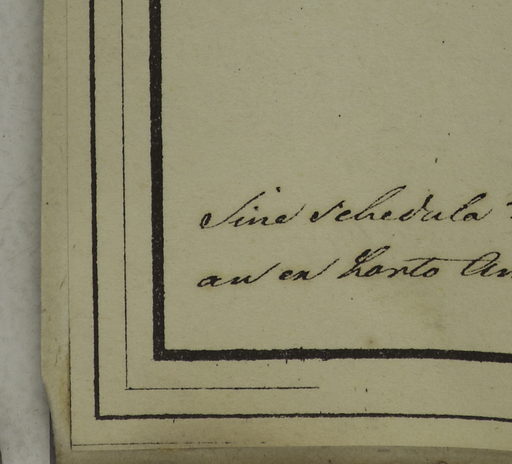 Sine schedula
au ex horto